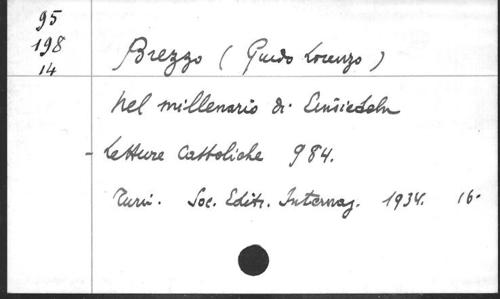 95
198
14
Brezzo (Guido Lorenzo)
Nel millenario di Einsiedeln
- Letture Cattoliche 984.
Turin. Soc. Editr. Internaz. 1934. 16.